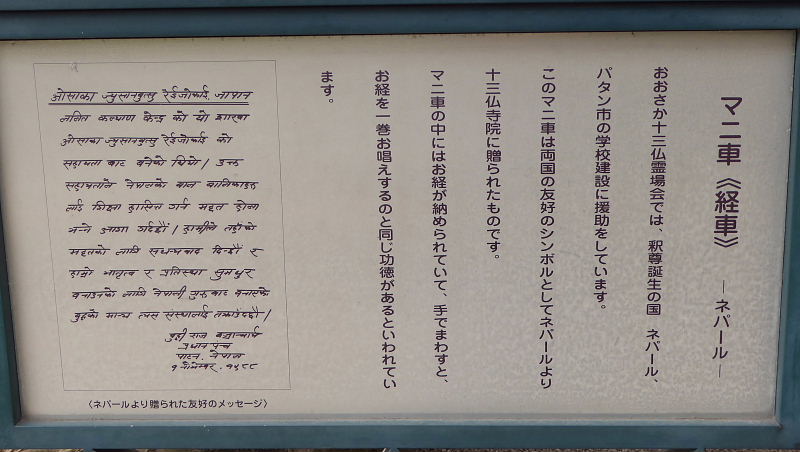 マニ車《経車》 ―ネパール―
おおさか十三仏霊場会では、釈尊誕生の国 ネパール、
パタン市の学校建設に援助をしています。
このマニ車は両国の友好のシンボルとしてネパールより
十三仏寺院に贈られたものです。
マニ車の中にはお経が納められていて、手でまわすと、
お経を一巻お唱えするのと同じ功徳があるといわれてい
ます。
ओसाका ज्युसानबुत्सु रेईजोकाई, जापान
ललित कल्याण केन्द्र को यो शाखा
ओसाका ज्युसानबुत्सु रेईजोकाई को
सहायता बाट बनेको थियो। उक्त
सहायताले नेपालको बाल बालिकाहरु
लाई शिक्षा हासिल गर्न मद्दत होला
भन्ने आशा गर्दछौं। हामीले तहाँको
मद्दतको लागि सधन्यवाद दिन्छौं र
हाम्रो भातृत्व र
को लागि नेपाली
बुद्धको मान्य त्यस संस्थालाई
राज बज्राचार्य
प्रधानपञ्च
पाटन, नेपाल
१ नोभेम्बर, १९८८
〈ネパールより贈られた友好のメッセージ〉